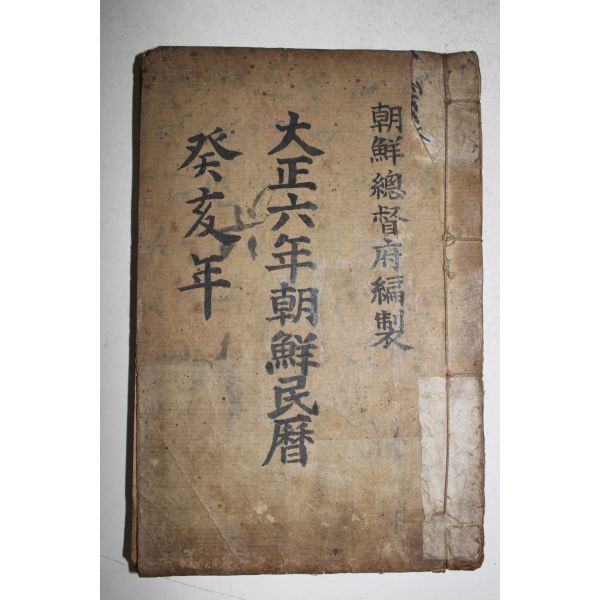 朝鮮總督府編製
大正六年朝鮮民暦
癸亥年